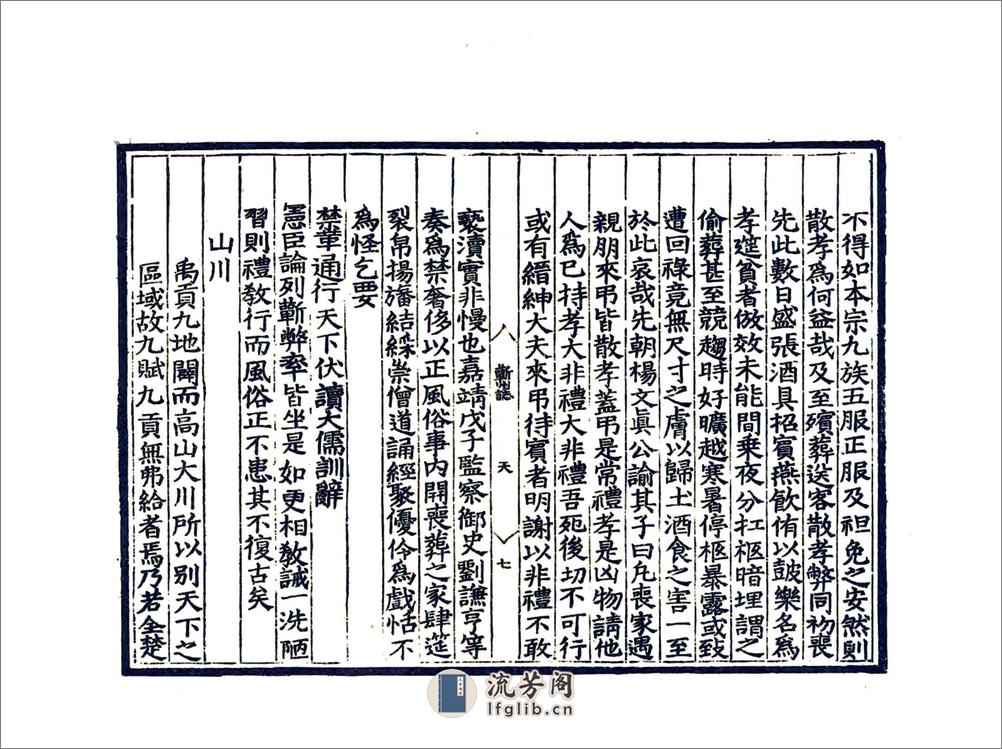 不得如本宗九族五服正服及袒免之安然則
散孝爲何益哉及至殯葬送客散孝弊同初喪
先此數日盛張酒具招賓燕飲侑以鼓樂名爲
孝筵貧者倣效未能間乗夜分扛柩暗埋謂之
偷葬甚至競趨時好曠越寒暑停柩暴露或致
遭回祿竟無尺寸之膚以歸土酒食之害一至
於此哀哉先朝楊文眞公諭其子曰凢喪家遇
親朋來弔皆散孝蓋弔是常禮孝是凶物請他
人爲已持孝大非禮大非禮吾死後切不可行
或有縉紳大夫來弔待賓者明謝以非禮不敢
蘄誌 天 七
褻瀆實非慢也嘉靖戊子監察御史劉謙亨等
奏爲禁奢侈以正風俗事内開喪葬之家肆筵
裂帛揚旛結綵崇僧道誦經聚優伶爲戲恬不
爲怪乞要
禁革通行天下伏讀大儒訓辭
憲臣論列蘄弊率皆坐是如更相敎誡一洗陋
習則禮敎行而風俗正不患其不復古矣
山川
禹貢九地闢而高山大川所以别天下之
區域故九賦九貢無弗給者焉乃若全楚
流芳阁
lfglib.cn